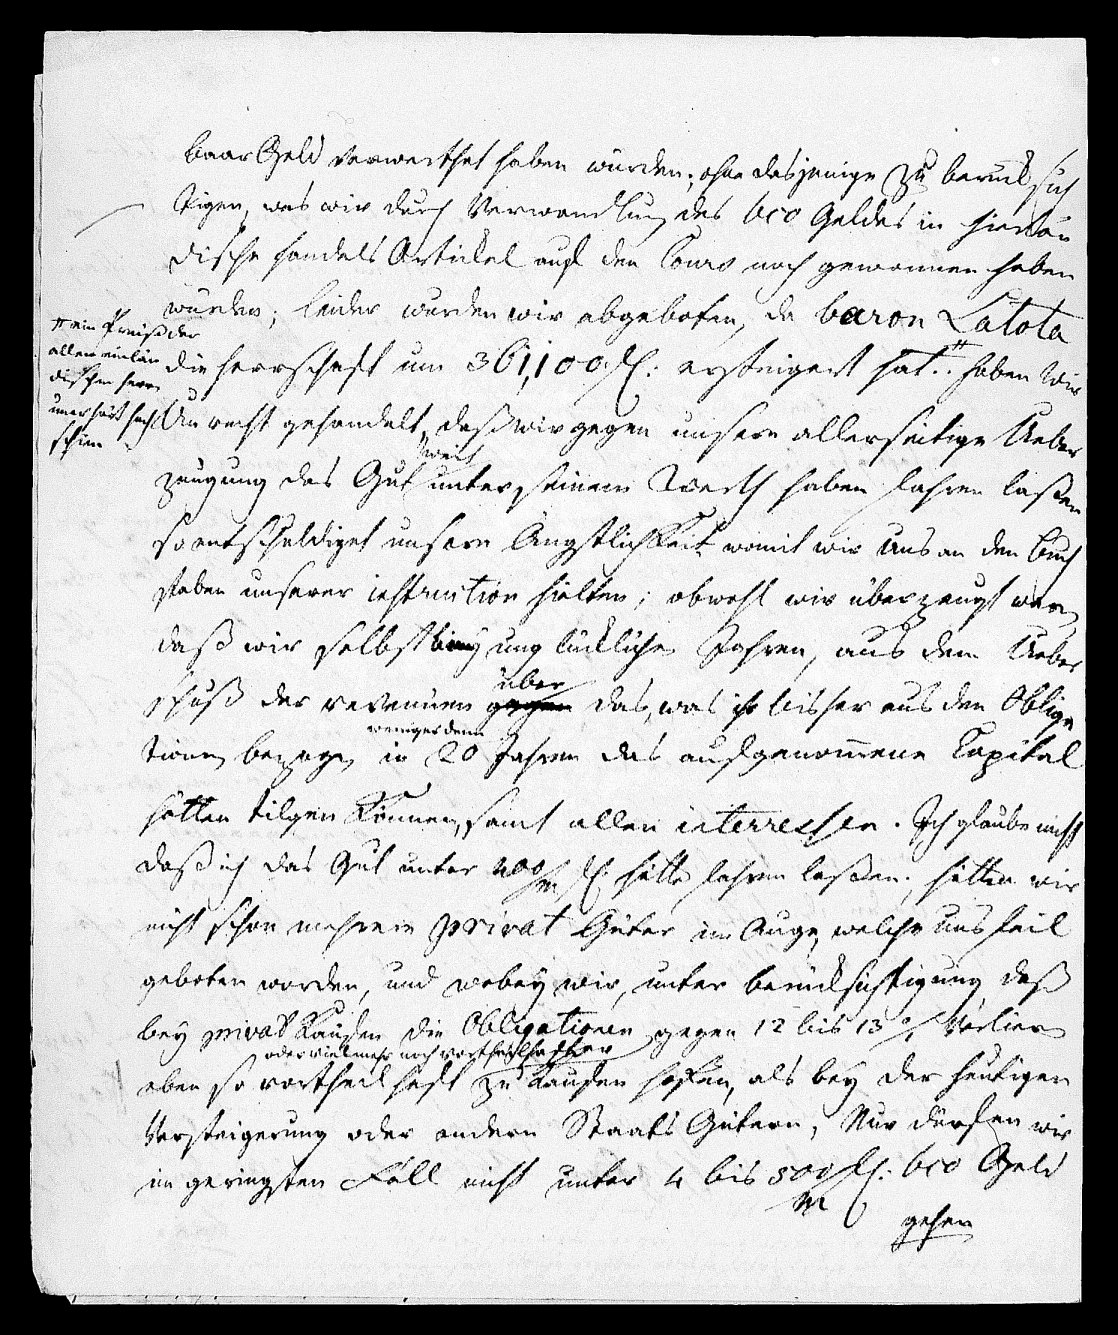 baar Geld verwerthet haben würden; ohne dasjenige zu berück sich
tigen, was wir durch Verwandlung des bco Geldes in hierlän
dische Handels Artickel auf den Cours noch gewonnen haben
würden; leider wurden wir abgeboten, da baron Latota
die Herrschaft um 361,100 fl: ersteigert hat. # Haben wir
# ein Preiß der
allen einlän
dischen Herrn
unerhört hoch
schien
Unrecht gehandelt, daß wir gegen unsere allerseitige Ueber
zeugung das Gut weit unter seinem Werth haben fahren laßen
so entschuldiget unsere Ängstlichkeit womit wir uns an den Buch
staben unserer instruction hielten; obwohl wir überzeugt waren
daß wir selbst bey unglücklichen Jahren, aus dem Ueber
schuß der revenüen über das, was ihr bisher aus den Obliga
tionen bezogen, in weniger denn 20 Jahren das aufgenom̅ene Capital
hätten tilgen können, samt allen interressen. Ich glaube nicht
daß ich das Gut unter 400/m fl hätte fahren laßen; hätten wir
nicht schon mehrere privat Güter im Auge, welche uns feil
geboten worden, und wobey wir, unter berücksichtigung daß
bey privat Käufen die Obligationen gegen 12 bis 13 % verlieren
oder vielmehr noch vortheilhafter
eben so vortheilhaft zu kaufen hoffen, als bey der heutigen
Versteigerung oder andern Staats Gütern, Nur dörfen wir
im geringsten Fall nicht unter 4 bis 500/m fl: bco Geld
gehen